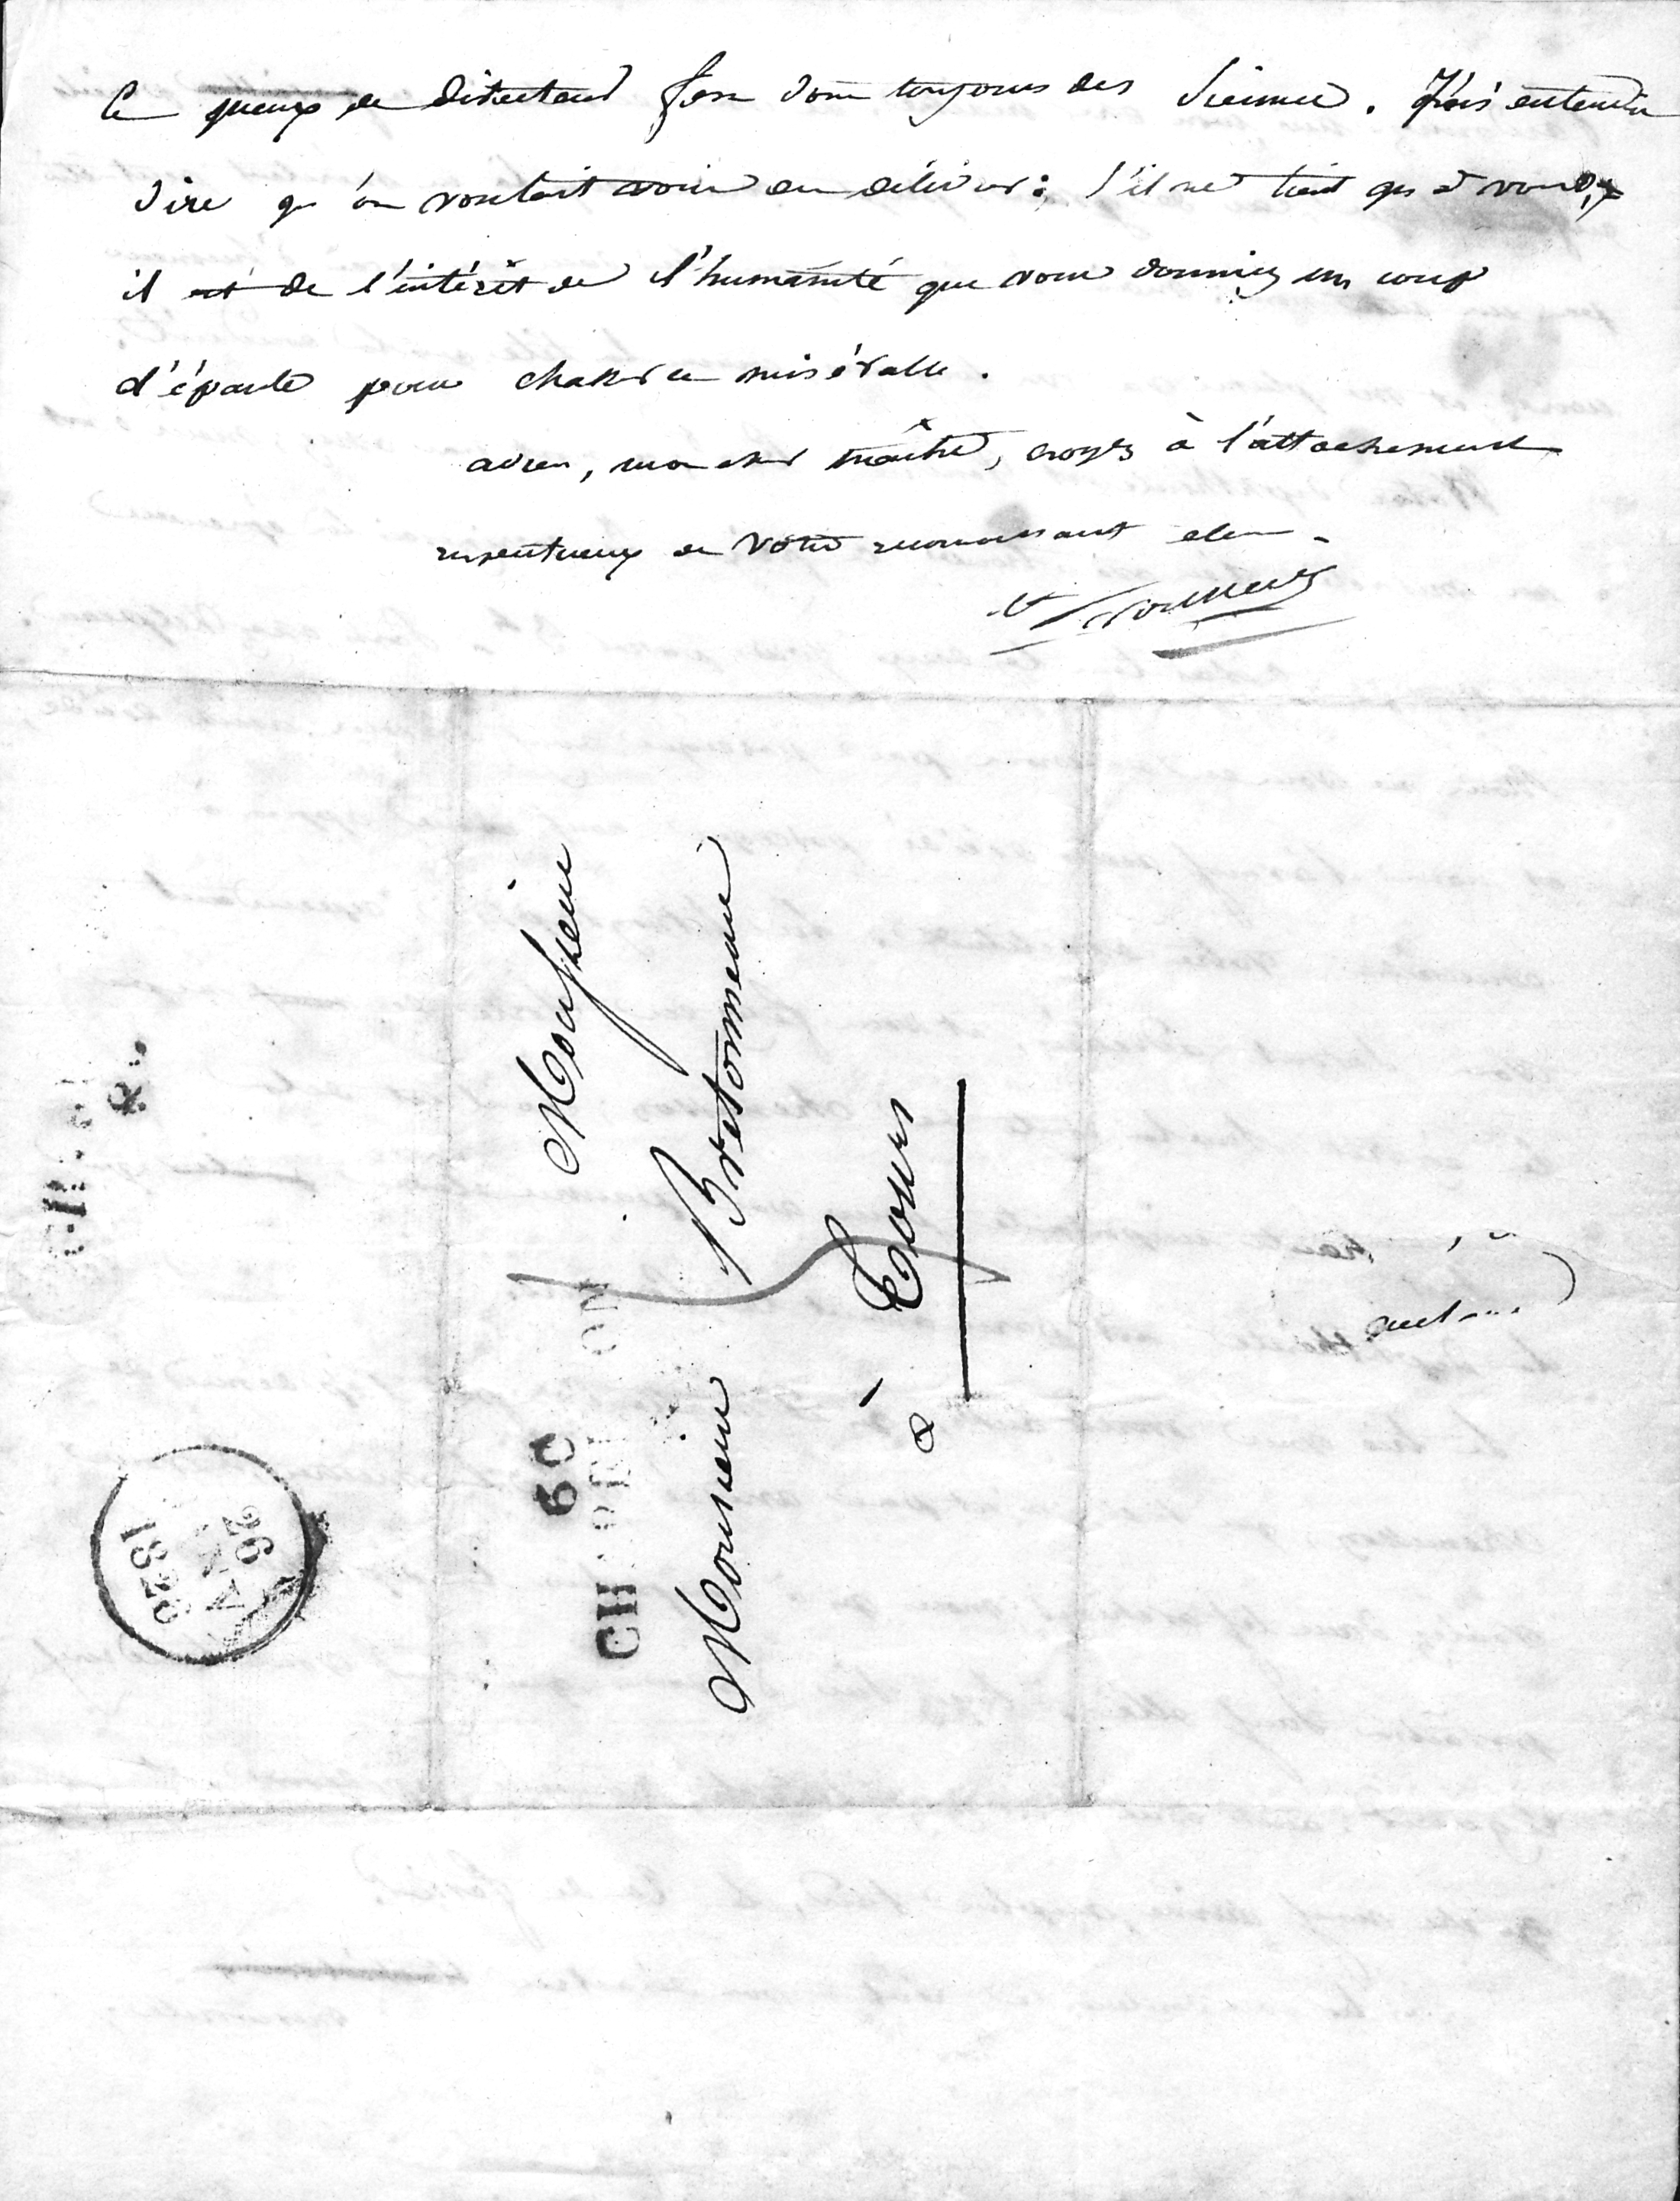 Ce gueux de directeur fera donc toujours des siennes. J'ai entendu
dire qu'on voulait vous en délivrer; s'il ne tient qu'à vous,
il est de l'intérêt de l'humanité que vous donniez un coup
d'épaule pour chasser ce misérable.
adieu, mon cher maître, croyez à l'attachement
respectueux de votre reconnaissant élève.
Monsieur
Monsieur Bretonneau
à Tours
60
CH
ON
26
1826